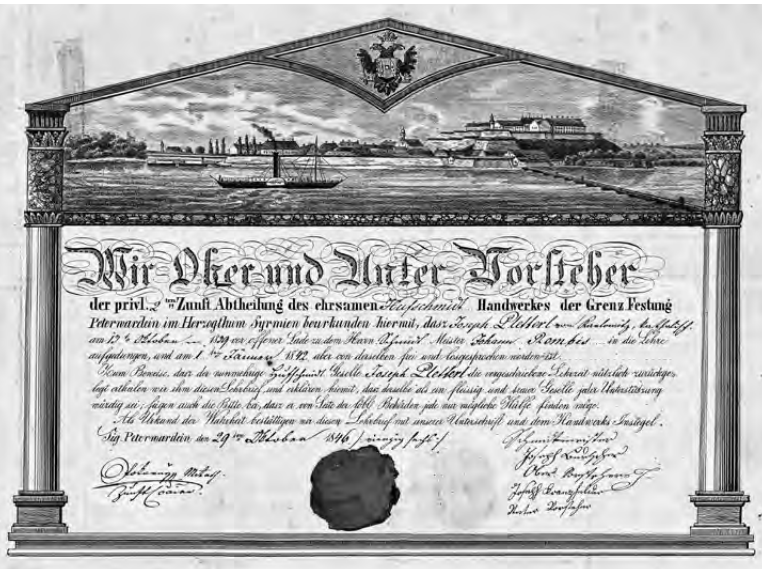 Wir Ober und Unter Vorsteher
der privl. 2ten Zunft Abtheilung des ehrsamen Hufschmidt Handwerkes der Grenz Festung
Peterwardein im Herzogthum Syrmien beurkunden hiermit, dasz Joseph Pletterl von Karlowitz,
am 15 Oktober im 1839 vor offener Lade zu dem Herrn Schmidt Meister Johann Rombes in die Lehre
aufgedungen, und am 1ten Januar 1842 aber von derselben frei und losgesprochen worden ist.
Zum Beweise, dasz der nunmehrige Hufschmidt Geselle Joseph Pletterl die vorgeschriebene Lehrzeit nützlich zurückge-
legt ertheilen wir ihm diesen Lehrbrief und erklären hiermit, dasz derselbe als ein fleissig und treuer Geselle jeder Unterstützung
würdig sei; fügen auch die Bitte bei, dasz er von Seite der löbl. Behörden jede nur mögliche Hülfe finden möge.
Als Urkund der Wahrheit bestättigen wir diesen Lehrbrief mit unserer Unterschrift und dem Handwerks Insiegel.
Sig. Peterwardein den 29ten Oktober 1846
Schmidtmeister
Joseph
Ober Vorsteher
Joseph
Unter Vorsteher